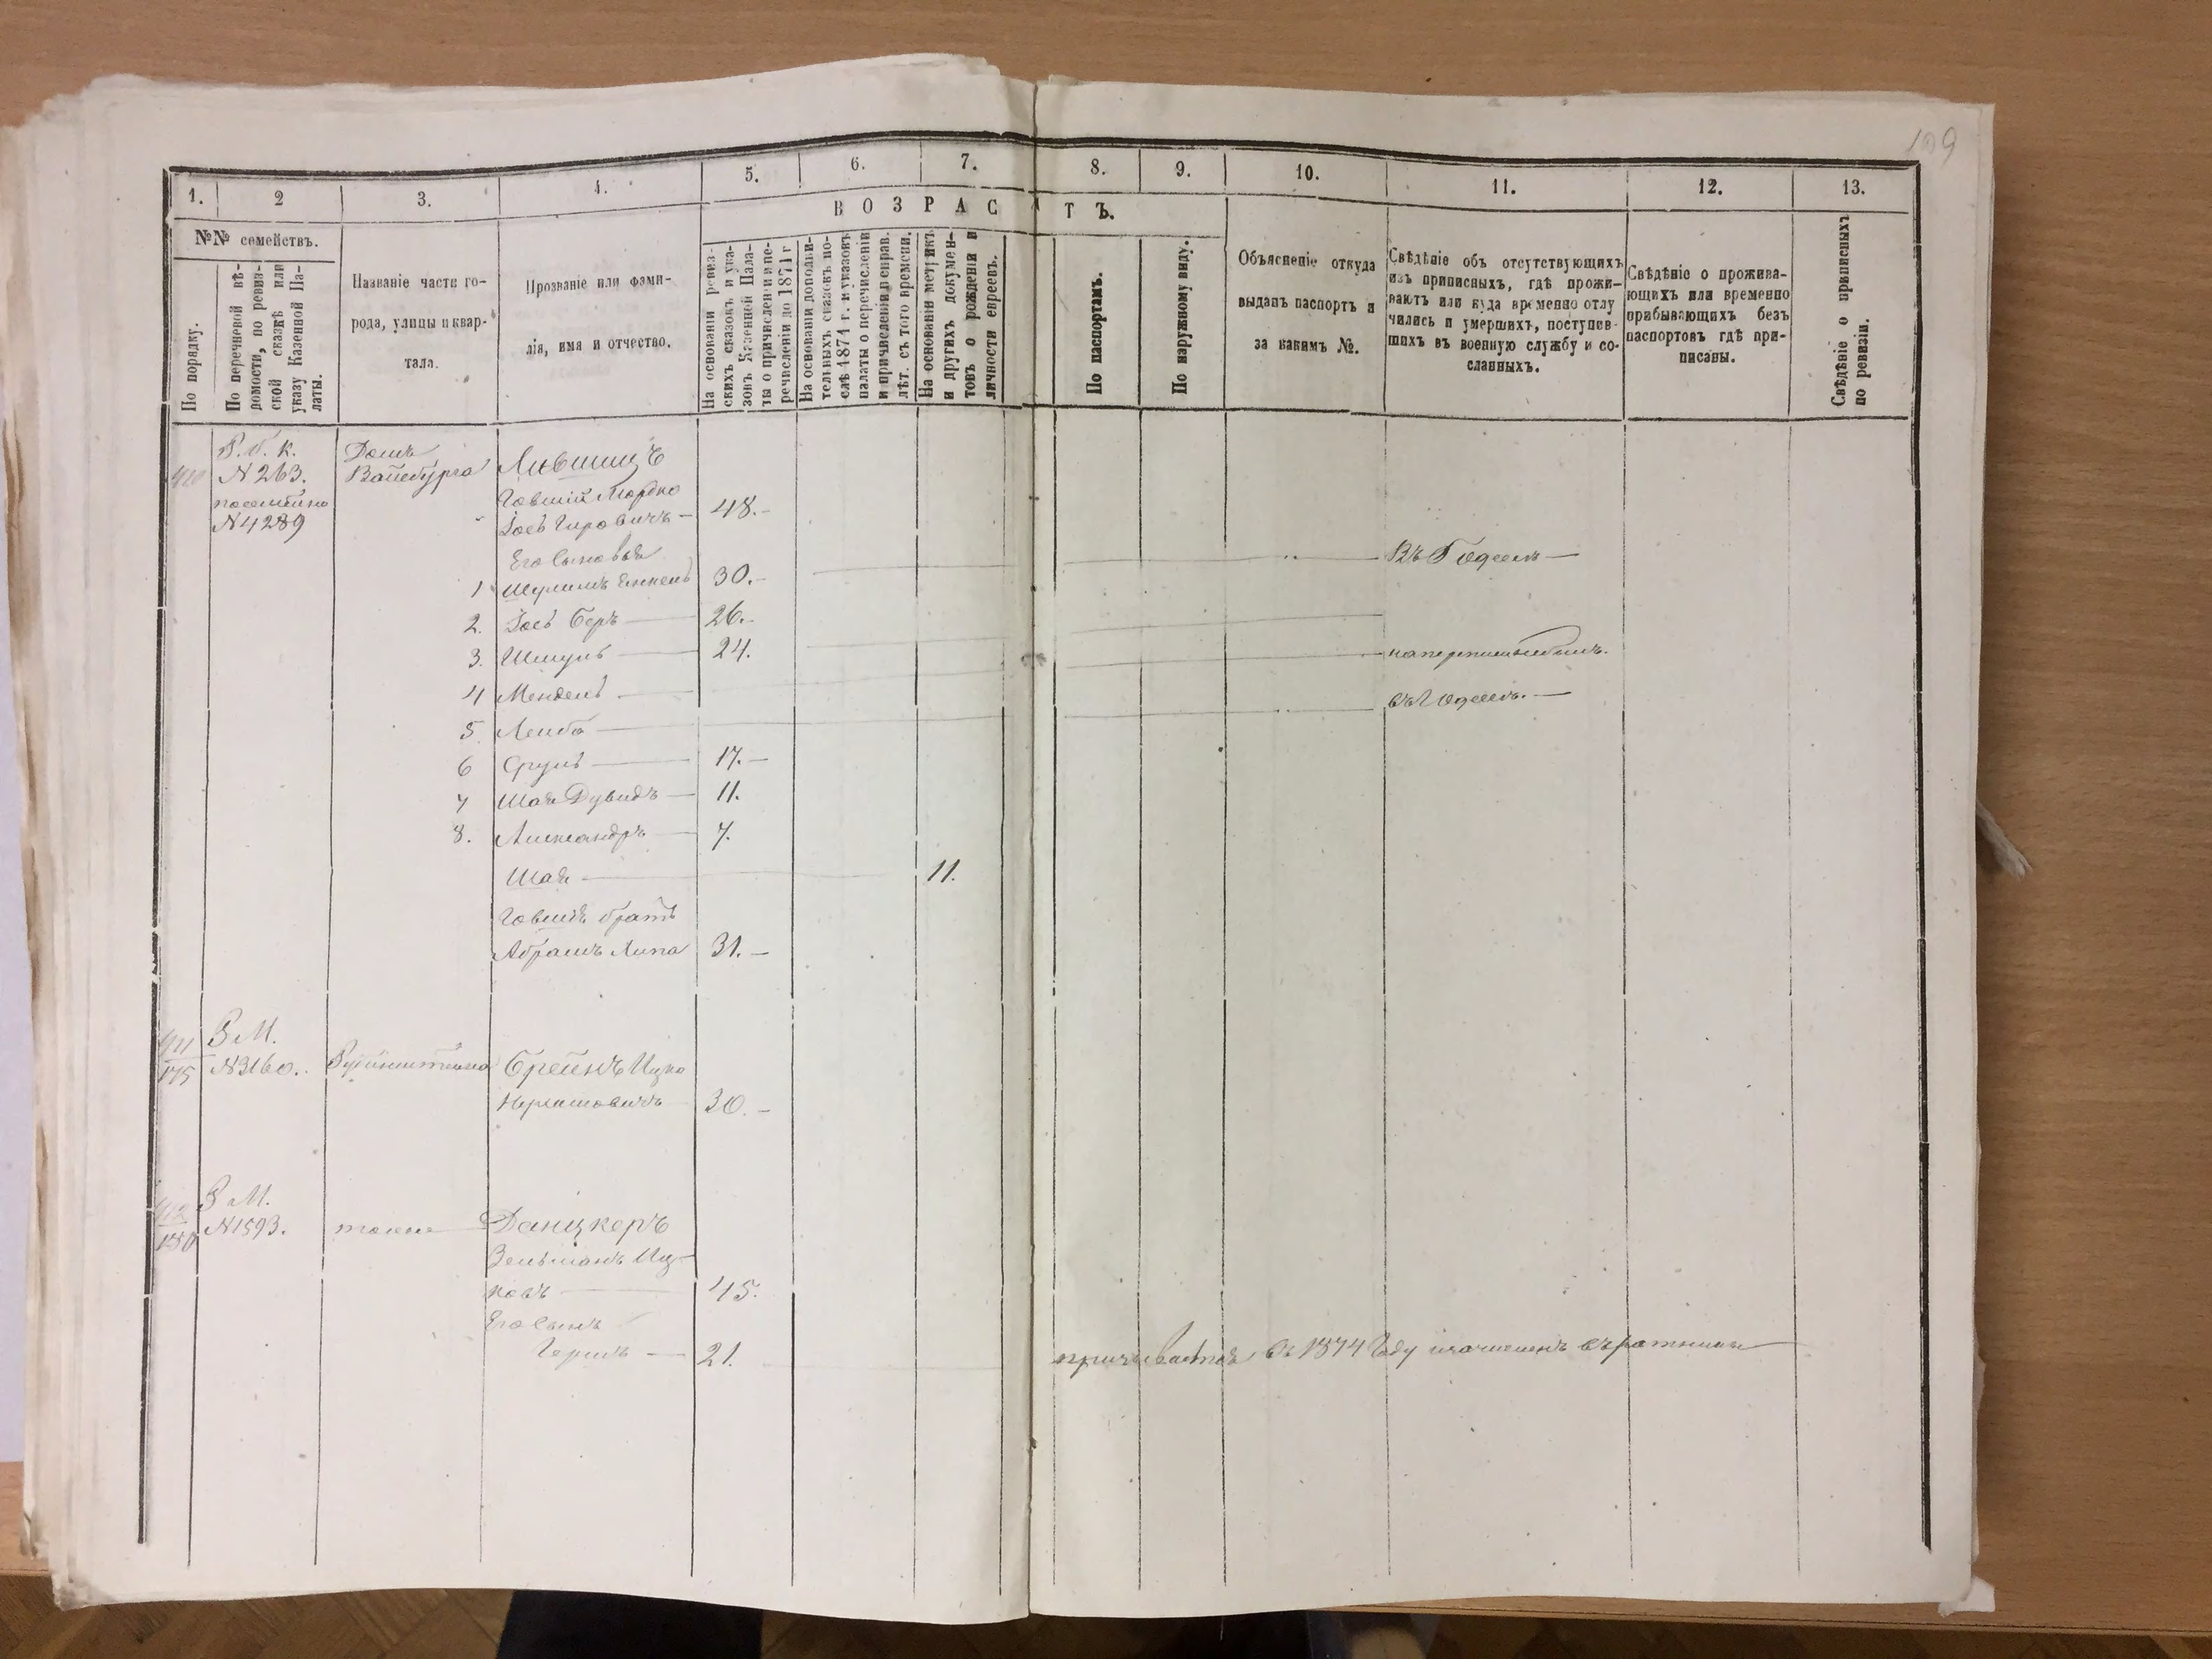 109
1. 2 3. 4. 5. 6. 7. 8. 9. 10. 11. 12. 13.
ВОЗРАСТЪ.
№№ семействъ.
По порядку.
По перечневой вѣ-
домости, по ревиз-
ской сказкѣ или
указу Казенной Па-
латы.
Названіе части го-
рода, улицы и квар-
тала.
Прозваніе или фами-
лія, имя и отчество.
На основаніи ревиз-
скихъ сказокъ и ука-
зовъ Казенной Пала-
ты о причисленіи и пе-
речисленіи до 1871 г
На основаніи дополни-
тельныхъ сказокъ по-
слѣ 1871 г. и указовъ
палаты о перечисленіи
и причисленіи и справ.
лѣт. съ того времени.
На основаніи метрикъ
и другихъ докумен-
товъ о рожденіи и
личности евреевъ.
По паспортамъ.
По наружному виду.
Объясненіе откуда
выданъ паспортъ и
за какимъ №.
Свѣдѣніе объ отсутствующихъ
изъ приписныхъ, гдѣ прожи-
ваютъ или куда временно отлу
чились и умершихъ, поступив-
шихъ въ военную службу и со-
сланныхъ.
Свѣдѣніе о прожива-
ющихъ или временно
прибывающихъ безъ
паспортовъ гдѣ при-
писаны.
Свѣдѣніе о приписныхъ
по ревизіи.
410
Р. б. к.
N 263.
N 4289
Домъ
Лившицъ
Мордко
Іось 48.-
Его сыновья
1 Шулимъ 30.- Въ Одессѣ
2. Іось Беръ 26.-
3. Шмуль 24.
4 Мендель въ Одессѣ.
5. Лейба
6 Сруль 17.-
7 Шая Дувидъ 11.
8. Александръ 7.
Шая 11.
братъ
Абрамъ Липа 31.-
411
175
Р М.
N 3160.
Ицко
30.-
412
180
Р М.
N 1593.
Данцкеръ
Зельманъ Иц-
ковъ 45.
Его сынъ
Гершъ 21. въ 1874 году въ ратники